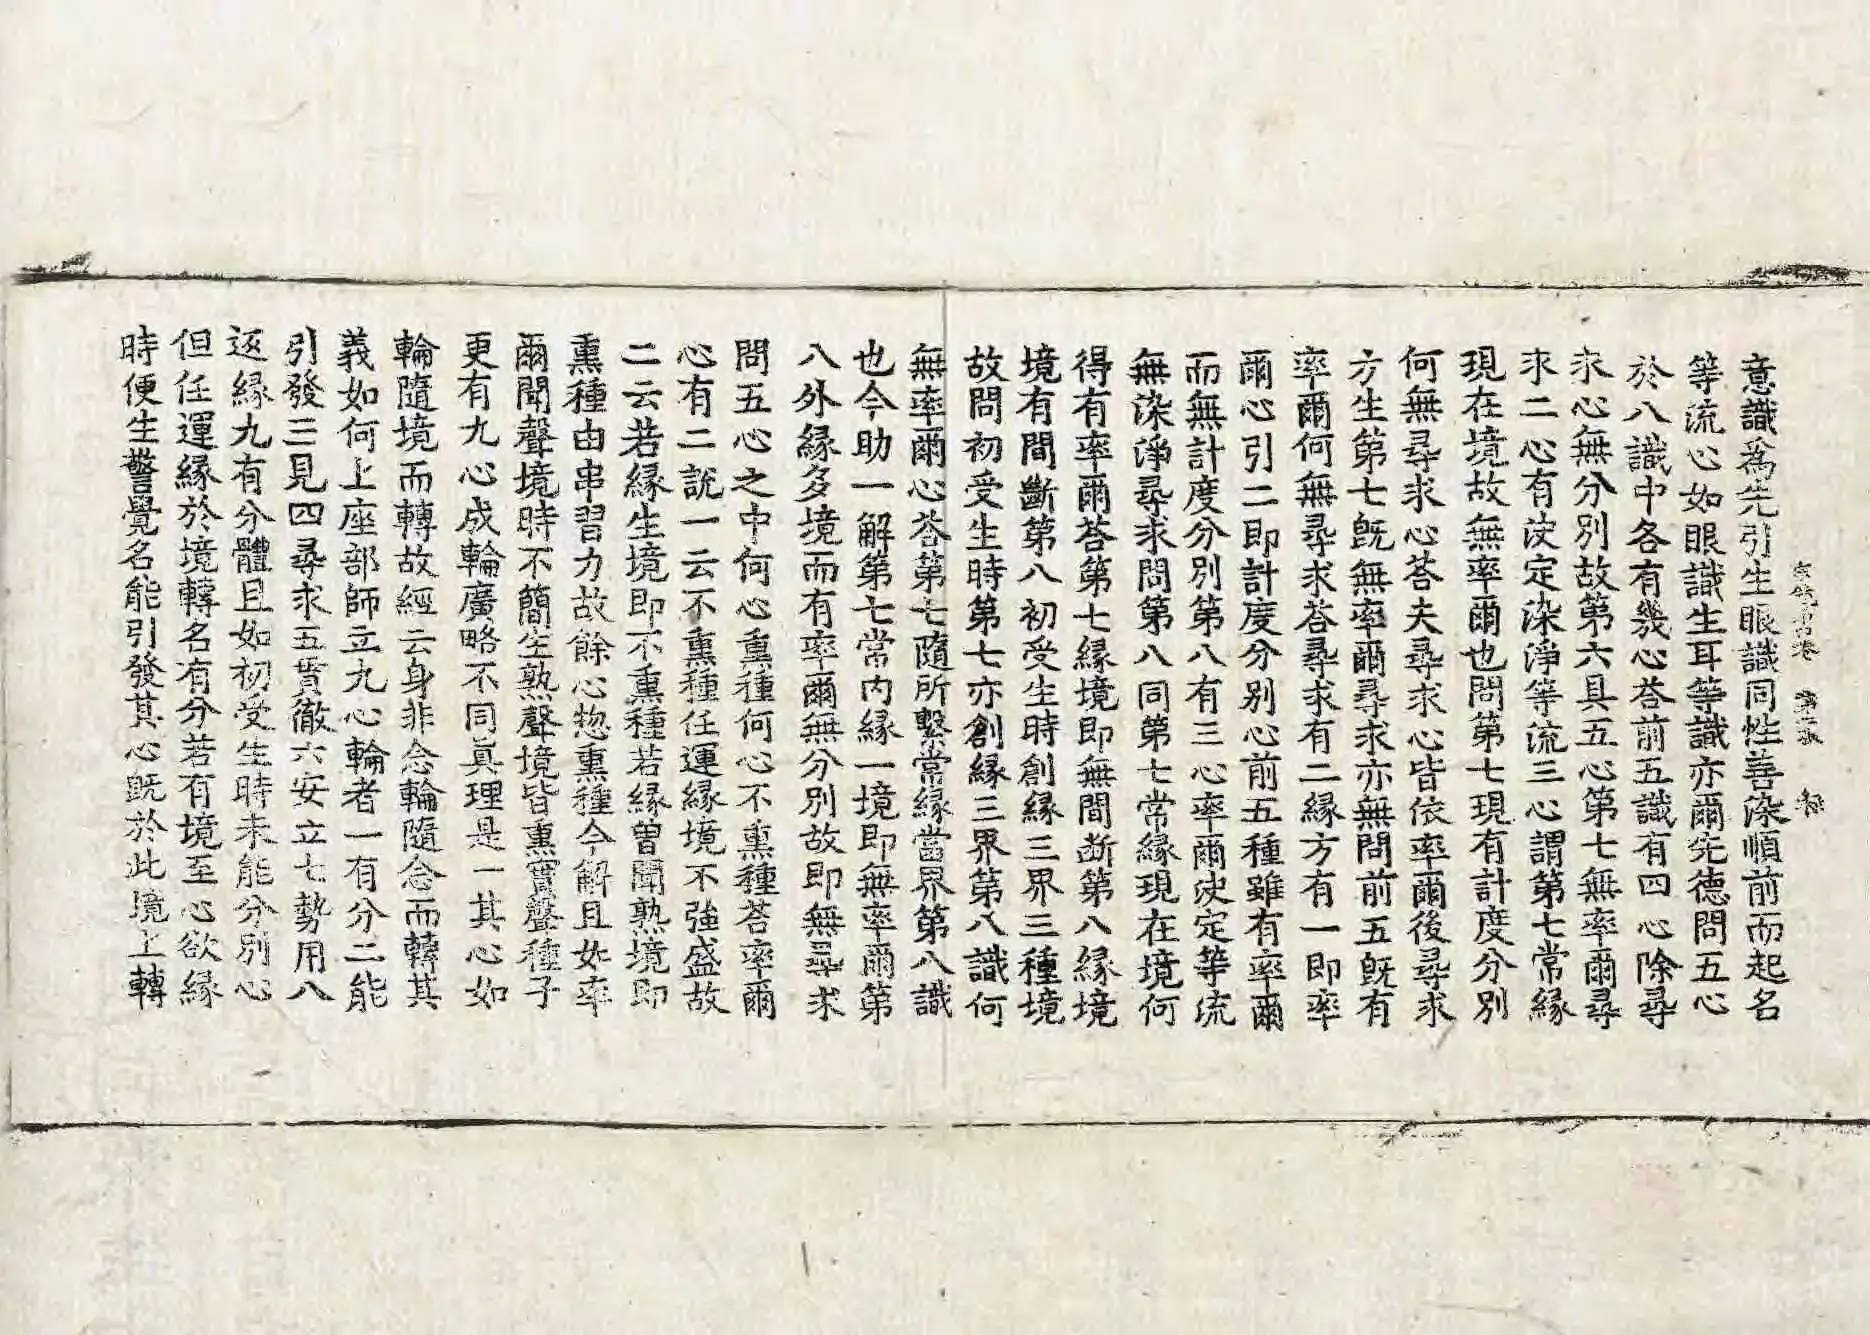 意識為先引生眼識同性善染順前而起名
等流心如眼識生耳等識亦爾先德問五心
於八識中各有幾心荅前五識有四心除尋
求心無分別故第六具五心第七無率爾尋
求二心有决定染淨等流三心謂第七常緣
現在境故無率爾也問第七現有計度分別
何無尋求心荅夫尋求心皆依率爾後尋求
方生第七旣無率爾尋求亦無問前五旣有
率爾何無尋求荅尋求有二緣方有一即率
爾心引二即計度分別心前五種雖有率爾
而無計度分別第八有三心率爾决定等流
無染淨尋求問第八同第七常緣現在境何
得有率爾荅第七緣境即無間断第八緣境
境有間斷第八初受生時創緣三界三種境
故問初受生時第七亦創緣三界第八識何
無率爾心荅第七隨所繫常緣當界第八識
也今助一解第七常内緣一境即無率爾第
八外緣多境而有率爾無分別故即無尋求
問五心之中何心熏種何心不熏種荅率爾
心有二說一云不熏種任運緣境不強盛故
二云若緣生境即不熏種若緣曾聞熟境即
熏種由串習力故餘心惣熏種今解且如率
爾聞聲境時不簡生熟聲境皆熏實聲種子
更有九心成輪廣略不同眞理是一其心如
輪隨境而轉故經云身非念輪隨念而轉其
義如何上座部師立九心輪者一有分二能
引發三見四尋求五貫徹六安立七勢用八
返緣九有分體且如初受生時未能分別心
但任運緣於境轉名有分若有境至心欲緣
時便生警覺名能引發其心旣於此境上轉